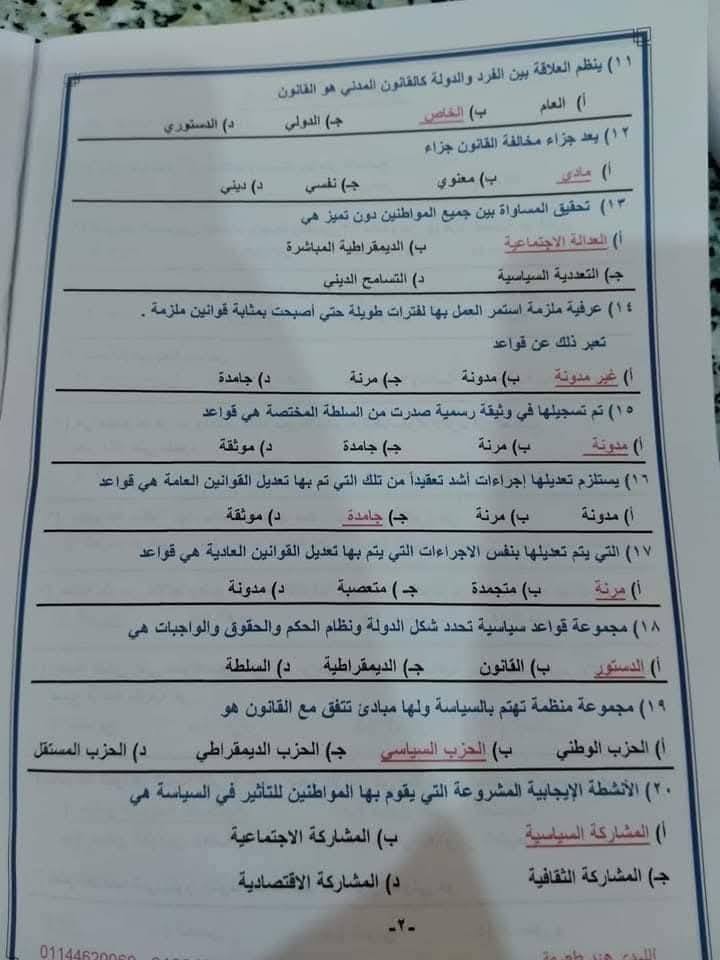 ١١) ينظم العلاقة بين الفرد والدولة كالقانون المدني هو القانون
أ) العام ب) الخاص جـ) الدولي د) الدستوري
١٢) يعد جزاء مخالفة القانون جزاء
أ) مادي ب) معنوي جـ) نفسي د) ديني
١٣) تحقيق المساواة بين جميع المواطنين دون تميز هي
أ) العدالة الاجتماعية ب) الديمقراطية المباشرة
جـ) التعددية السياسية د) التسامح الديني
١٤) عرفية ملزمة استمر العمل بها لفترات طويلة حتي أصبحت بمثابة قوانين ملزمة .
تعبر ذلك عن قواعد
أ) غير مدونة ب) مدونة جـ) مرنة د) جامدة
١٥) تم تسجيلها في وثيقة رسمية صدرت من السلطة المختصة هي قواعد
أ) مدونة ب) مرنة جـ) جامدة د) موثقة
١٦) يستلزم تعديلها إجراءات أشد تعقيداً من تلك التي تم بها تعديل القوانين العامة هي قواعد
أ) مدونة ب) مرنة جـ) جامدة د) موثقة
١٧) التي يتم تعديلها بنفس الاجراءات التي يتم بها تعديل القوانين العادية هي قواعد
أ) مرنة ب) متجمدة جـ ) متعصبة د) مدونة
١٨) مجموعة قواعد سياسية تحدد شكل الدولة ونظام الحكم والحقوق والواجبات هي
أ) الدستور ب) القانون جـ) الديمقراطية د) السلطة
١٩) مجموعة منظمة تهتم بالسياسة ولها مبادئ تتفق مع القانون هو
أ) الحزب الوطني ب) الحزب السياسي جـ) الحزب الديمقراطي د) الحزب المستقل
٢٠) الأنشطة الإيجابية المشروعة التي يقوم بها المواطنين للتأثير في السياسة هي
أ) المشاركة السياسية ب) المشاركة الاجتماعية
جـ) المشاركة الثقافية د) المشاركة الاقتصادية
-٢-